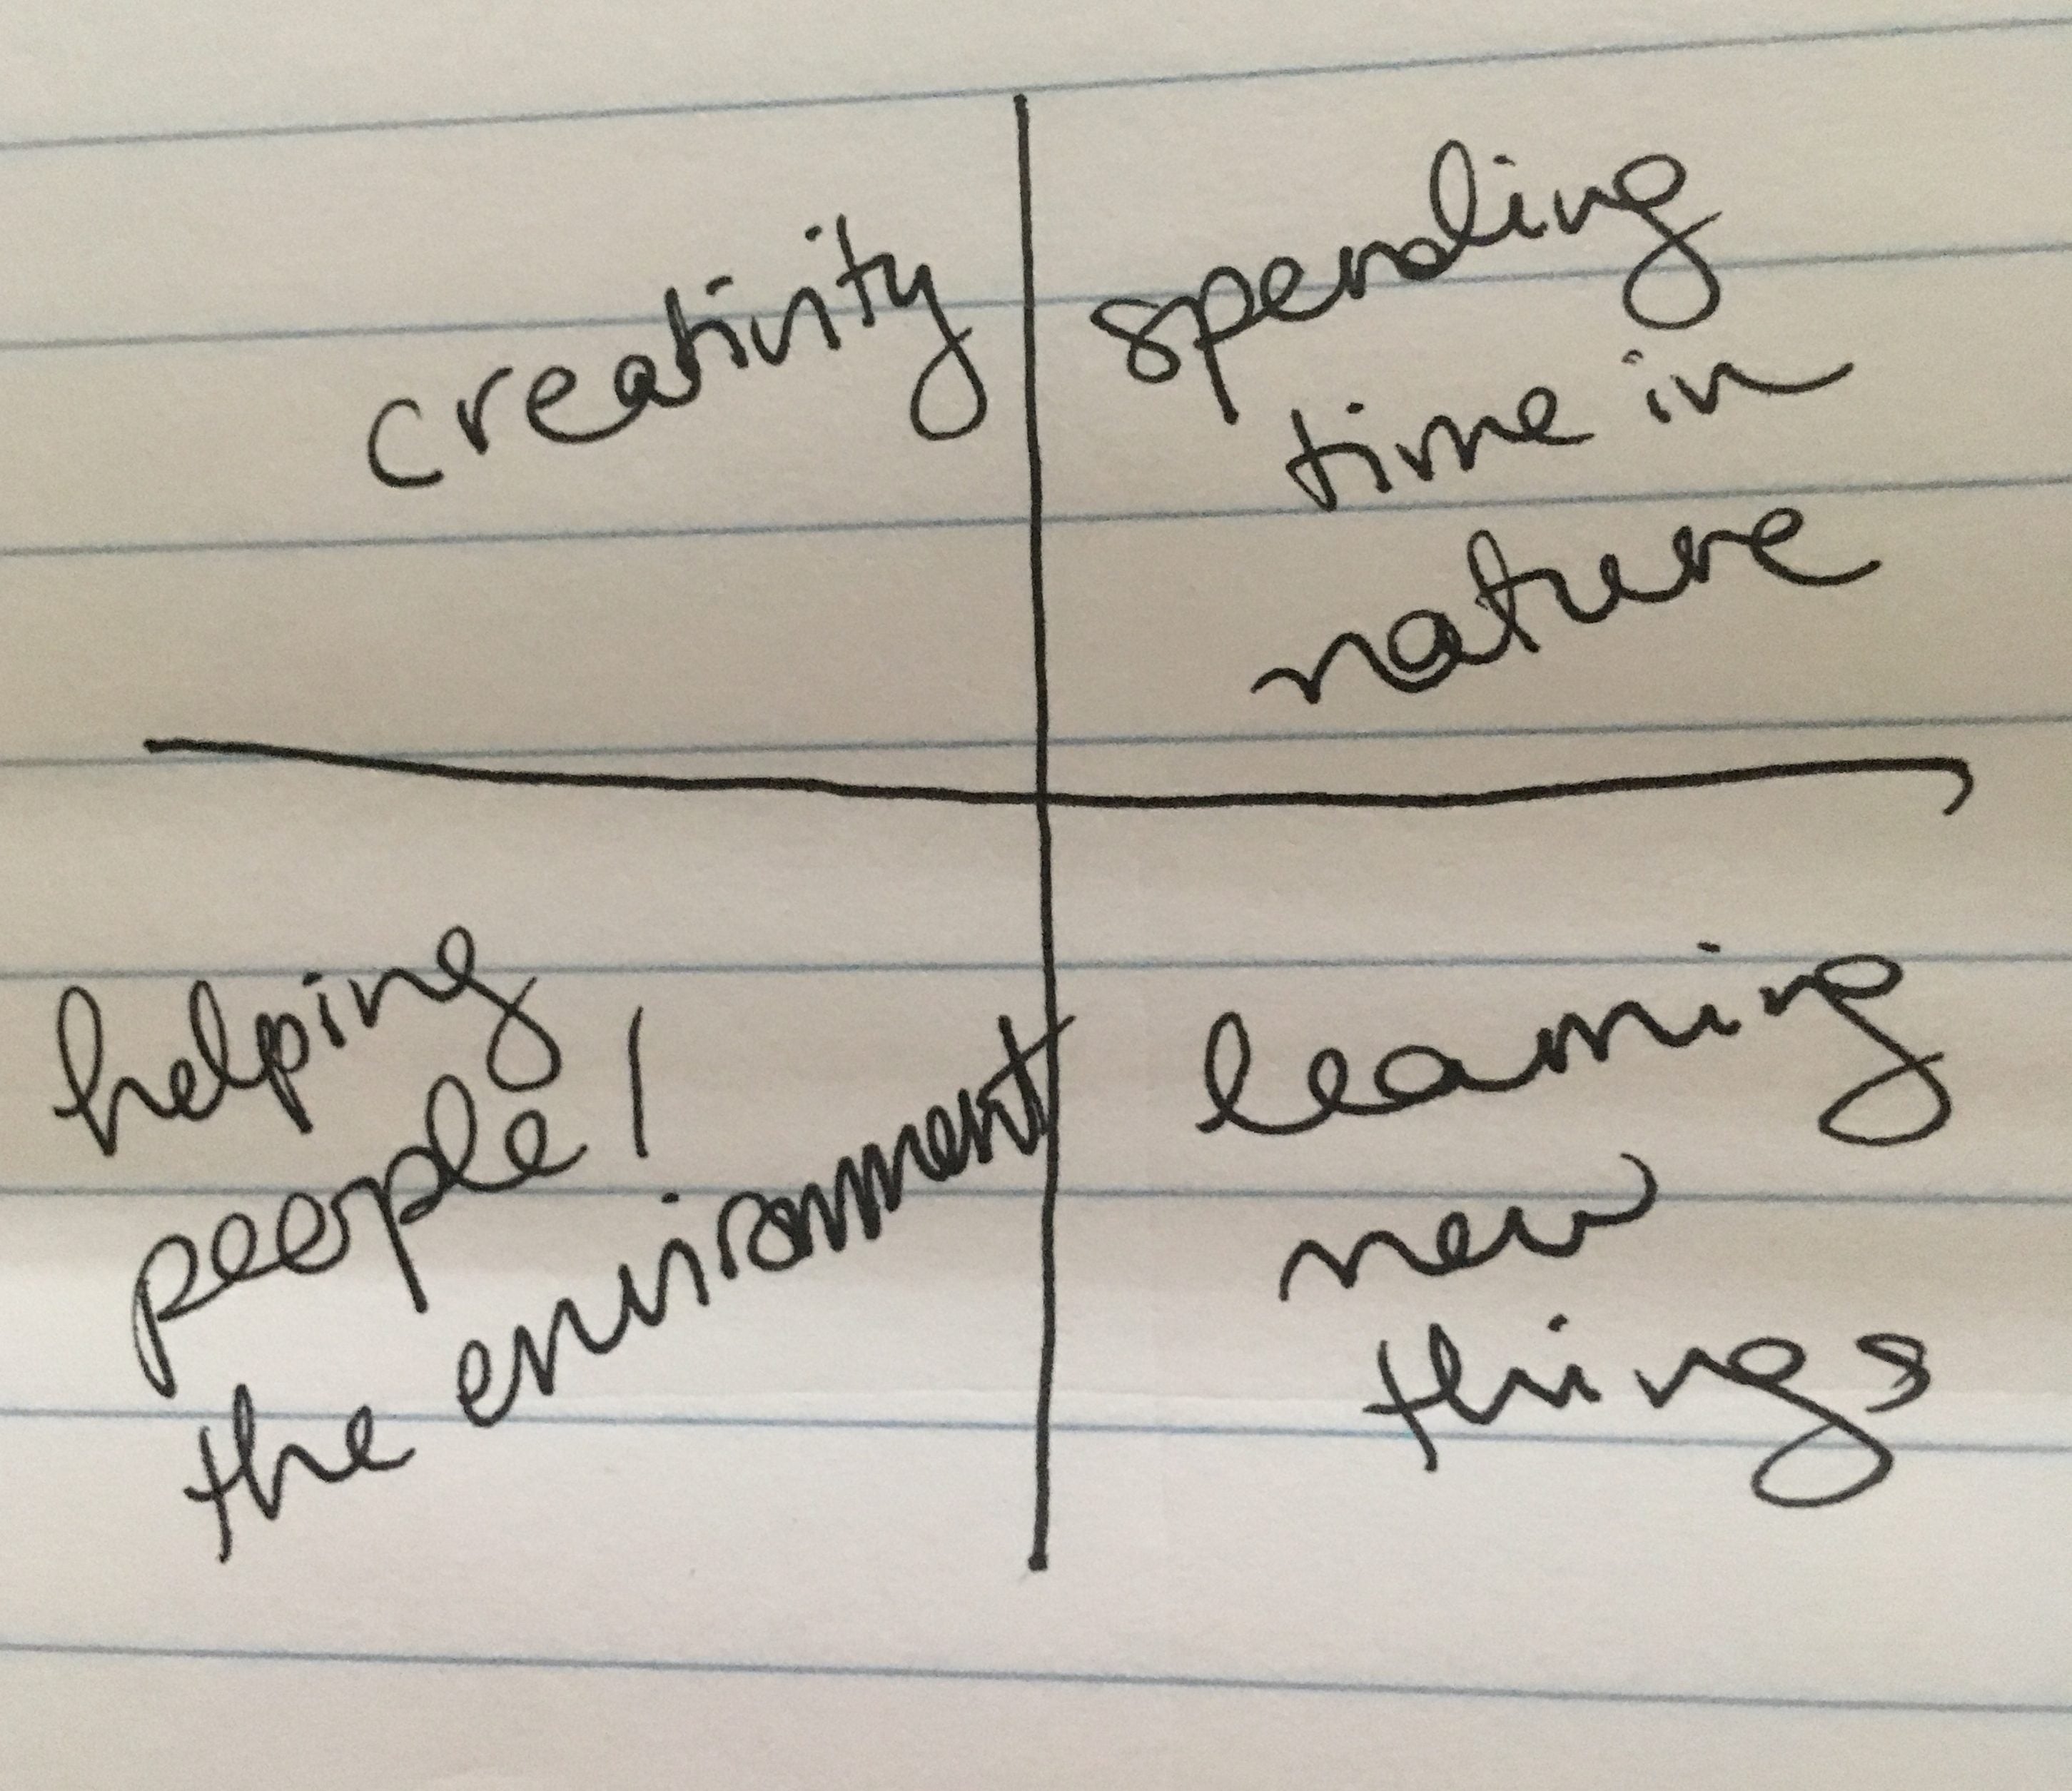 creativity
spending
time in
nature
helping
people /
the environment
learning
new
things